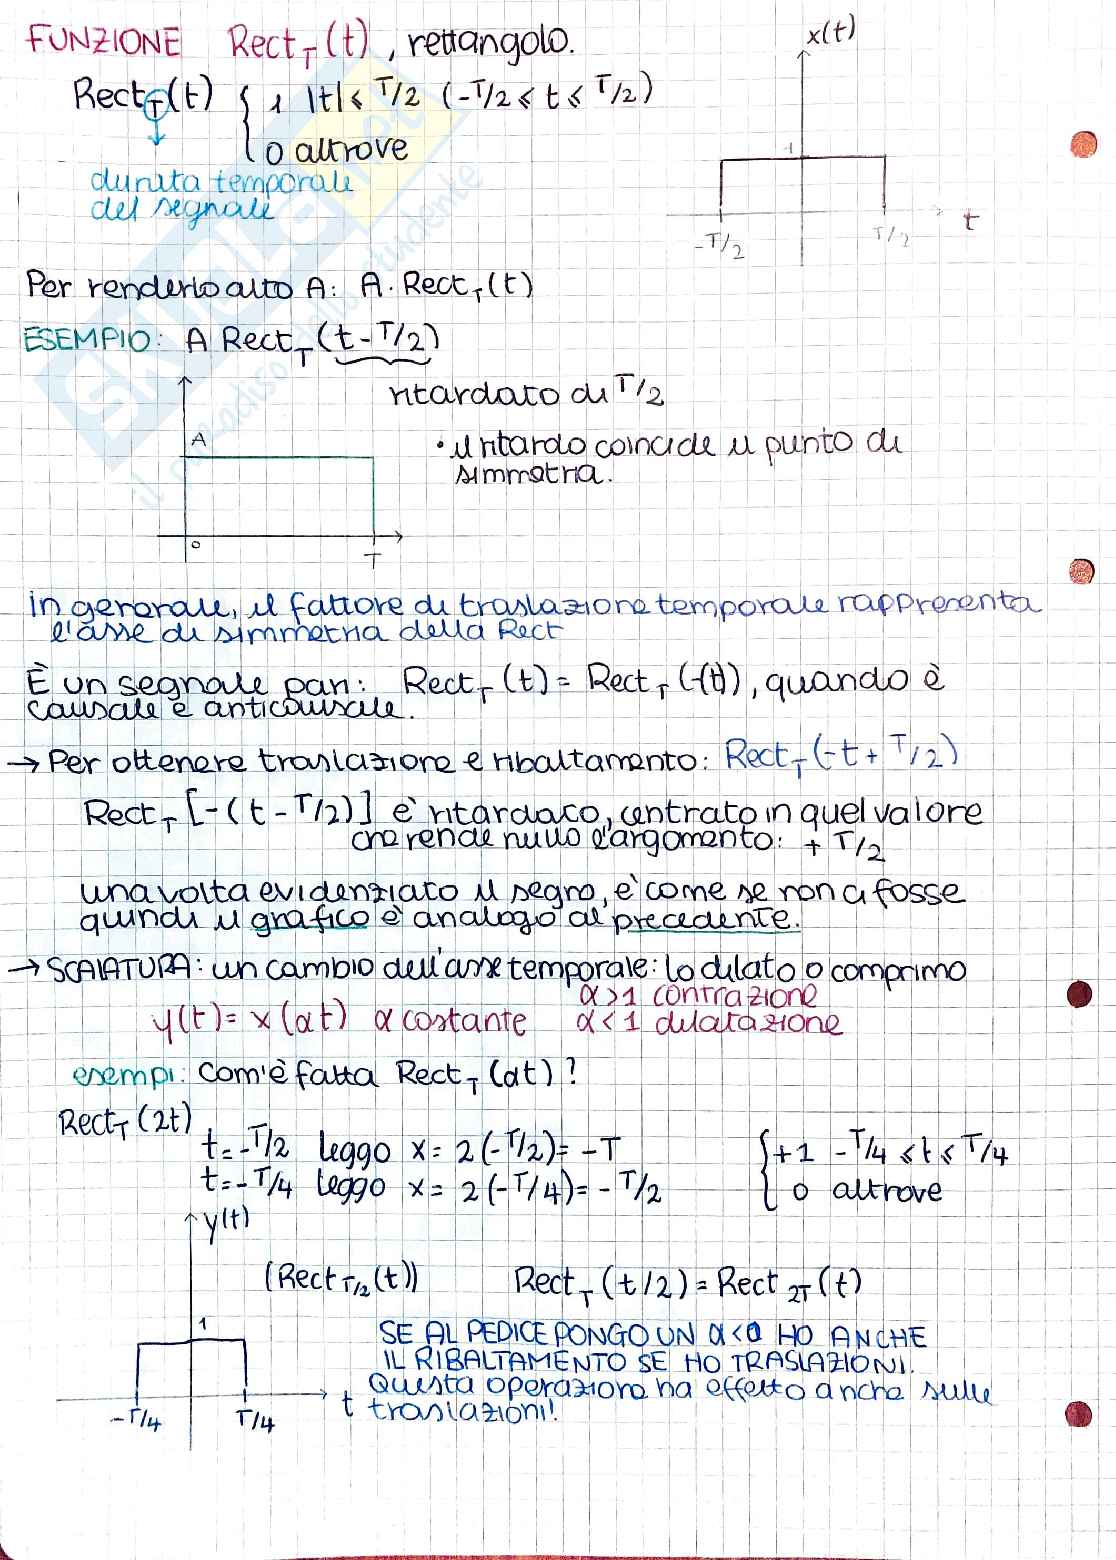 FUNZIONE Rect_T(t), rettangolo.
x(t)
Rect_T(t) { 1 |t| ≤ T/2 (-T/2 ≤ t ≤ T/2)
0 altrove
durata temporale
del segnale
1
-T/2 T/2 t
Per renderlo alto A: A · Rect_T(t)
ESEMPIO: A Rect_T(t - T/2)
ritardato di T/2
A
• il ritardo coincide il punto di
simmetria.
0 T
in generale, il fattore di traslazione temporale rappresenta
l'asse di simmetria della Rect
È un segnale pari: Rect_T(t) = Rect_T(-(t)), quando è
causale e anticausale.
→ Per ottenere traslazione e ribaltamento: Rect_T(-t + T/2)
Rect_T[-(t - T/2)] è ritardato, centrato in quel valore
che rende nullo l'argomento: + T/2
una volta evidenziato il segno, è come se non ci fosse
quindi il grafico è analogo al precedente.
→ SCALATURA: un cambio dell'asse temporale: lo dilato o comprimo
α>1 contrazione
y(t) = x(αt) α costante α<1 dilatazione
esempi: Com'è fatta Rect_T(αt)?
Rect_T(2t)
t = -T/2 leggo x = 2(-T/2) = -T { +1 -T/4 ≤ t ≤ T/4
t = -T/4 leggo x = 2(-T/4) = -T/2 0 altrove
y(t)
(Rect_T/2(t)) Rect_T(t/2) = Rect_2T(t)
1
SE AL PEDICE PONGO UN α<0 HO ANCHE
IL RIBALTAMENTO SE HO TRASLAZIONI.
Questa operazione ha effetto anche sulle
traslazioni!
-T/4 T/4 t
SKUOLA.net
il paradiso dello studente